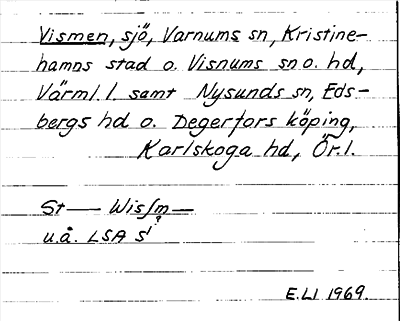 Vismen, sjö, Varnums sn, Kristine-
hamns stad o. Visnums sn o. hd,
Värml. l. samt Nysunds sn, Eds-
bergs hd o. Degerfors köping,
Karlskoga hd, Ör. l.
St — Wis/m —
?
u.å. LSA S1
E.LI 1969.